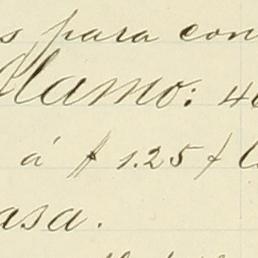 s para con
Alamo: 40
á $ 1.25 f
asa.